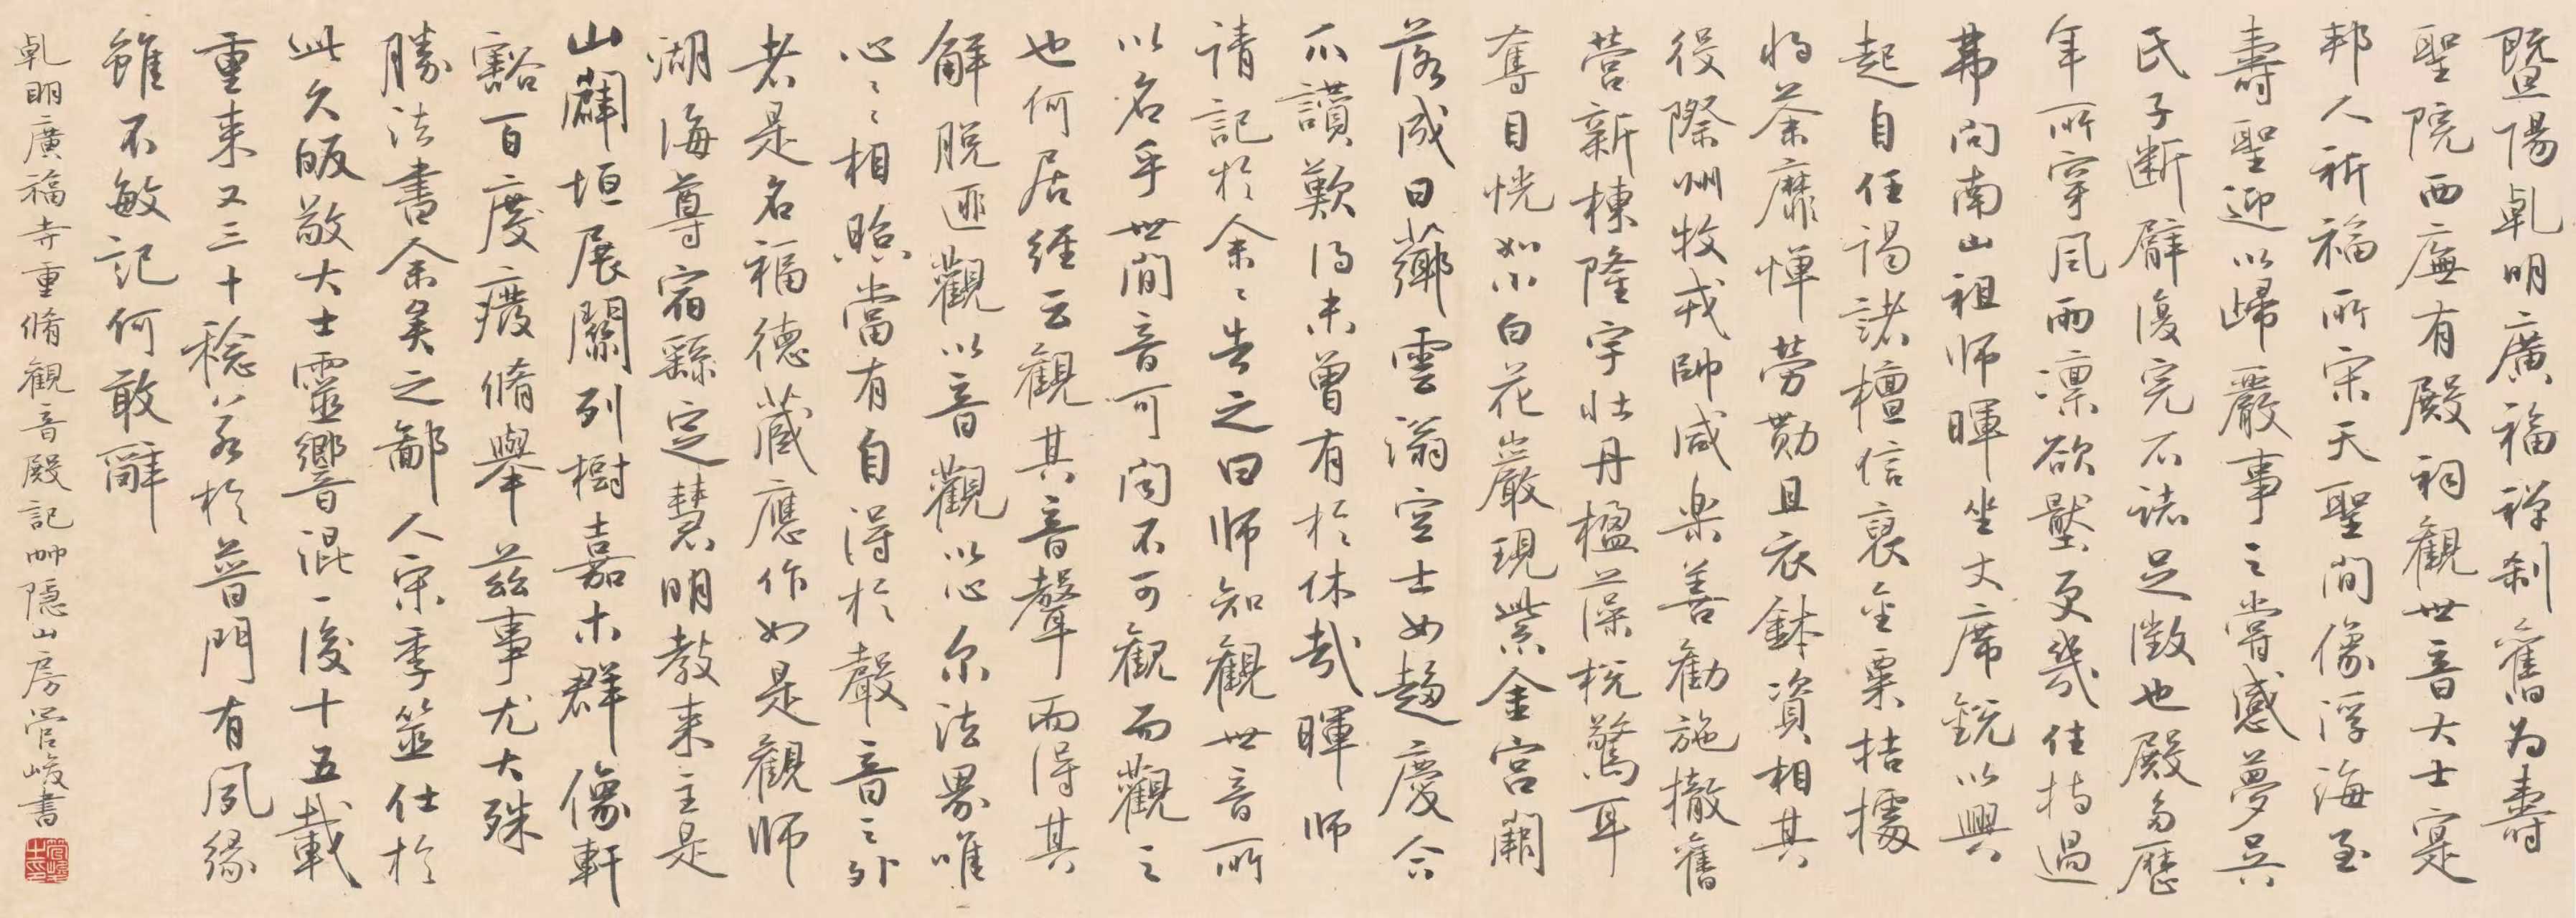 暨陽乹明廣福禅刹舊为壽
聖院西廡有殿祠觀世音大士寔
邦人祈福所宋天聖間像浮海至
壽聖迎以歸嚴事之嘗感夢吴
氏子断臂復完不诸足徴也殿多歷
年所穿風雨凛欲壓更幾住持過
弗问南山祖师暉坐丈席銳以興
起自任谒諸檀信裒金粟拮據
将茶靡惮劳勩且衣鉢資相其
役際州牧戎帥咸樂善勸施撤舊
营新棟隆宇壮丹楹藻棁驚耳
奪目恍如小白花巖現紫金宫闕
落成日薌雲滃空士女趨慶合
爪讃歎得未曾有於休哉暉师
请記於余余告之曰师知觀世音所
以名乎世間音可闻不可觀而觀之
也何居經云觀其音聲而得其
解脱匪觀以音觀以心尔法界唯
心心相照當有自得於聲音之外
者是名福德藏應作如是觀师
湖海尊宿繇定慧明教来主是
山闢垣展關列樹嘉木群像軒
豁百廢癈脩舉兹事尤大殊
勝法書余矣之鄙人宋季筮仕於
此久皈敬大士靈響混一後十五載
重来又三十稔若於普門有夙缘
雖不敏記何敢辭
乹明廣福寺重脩觀音殿記 隐山房管峻書